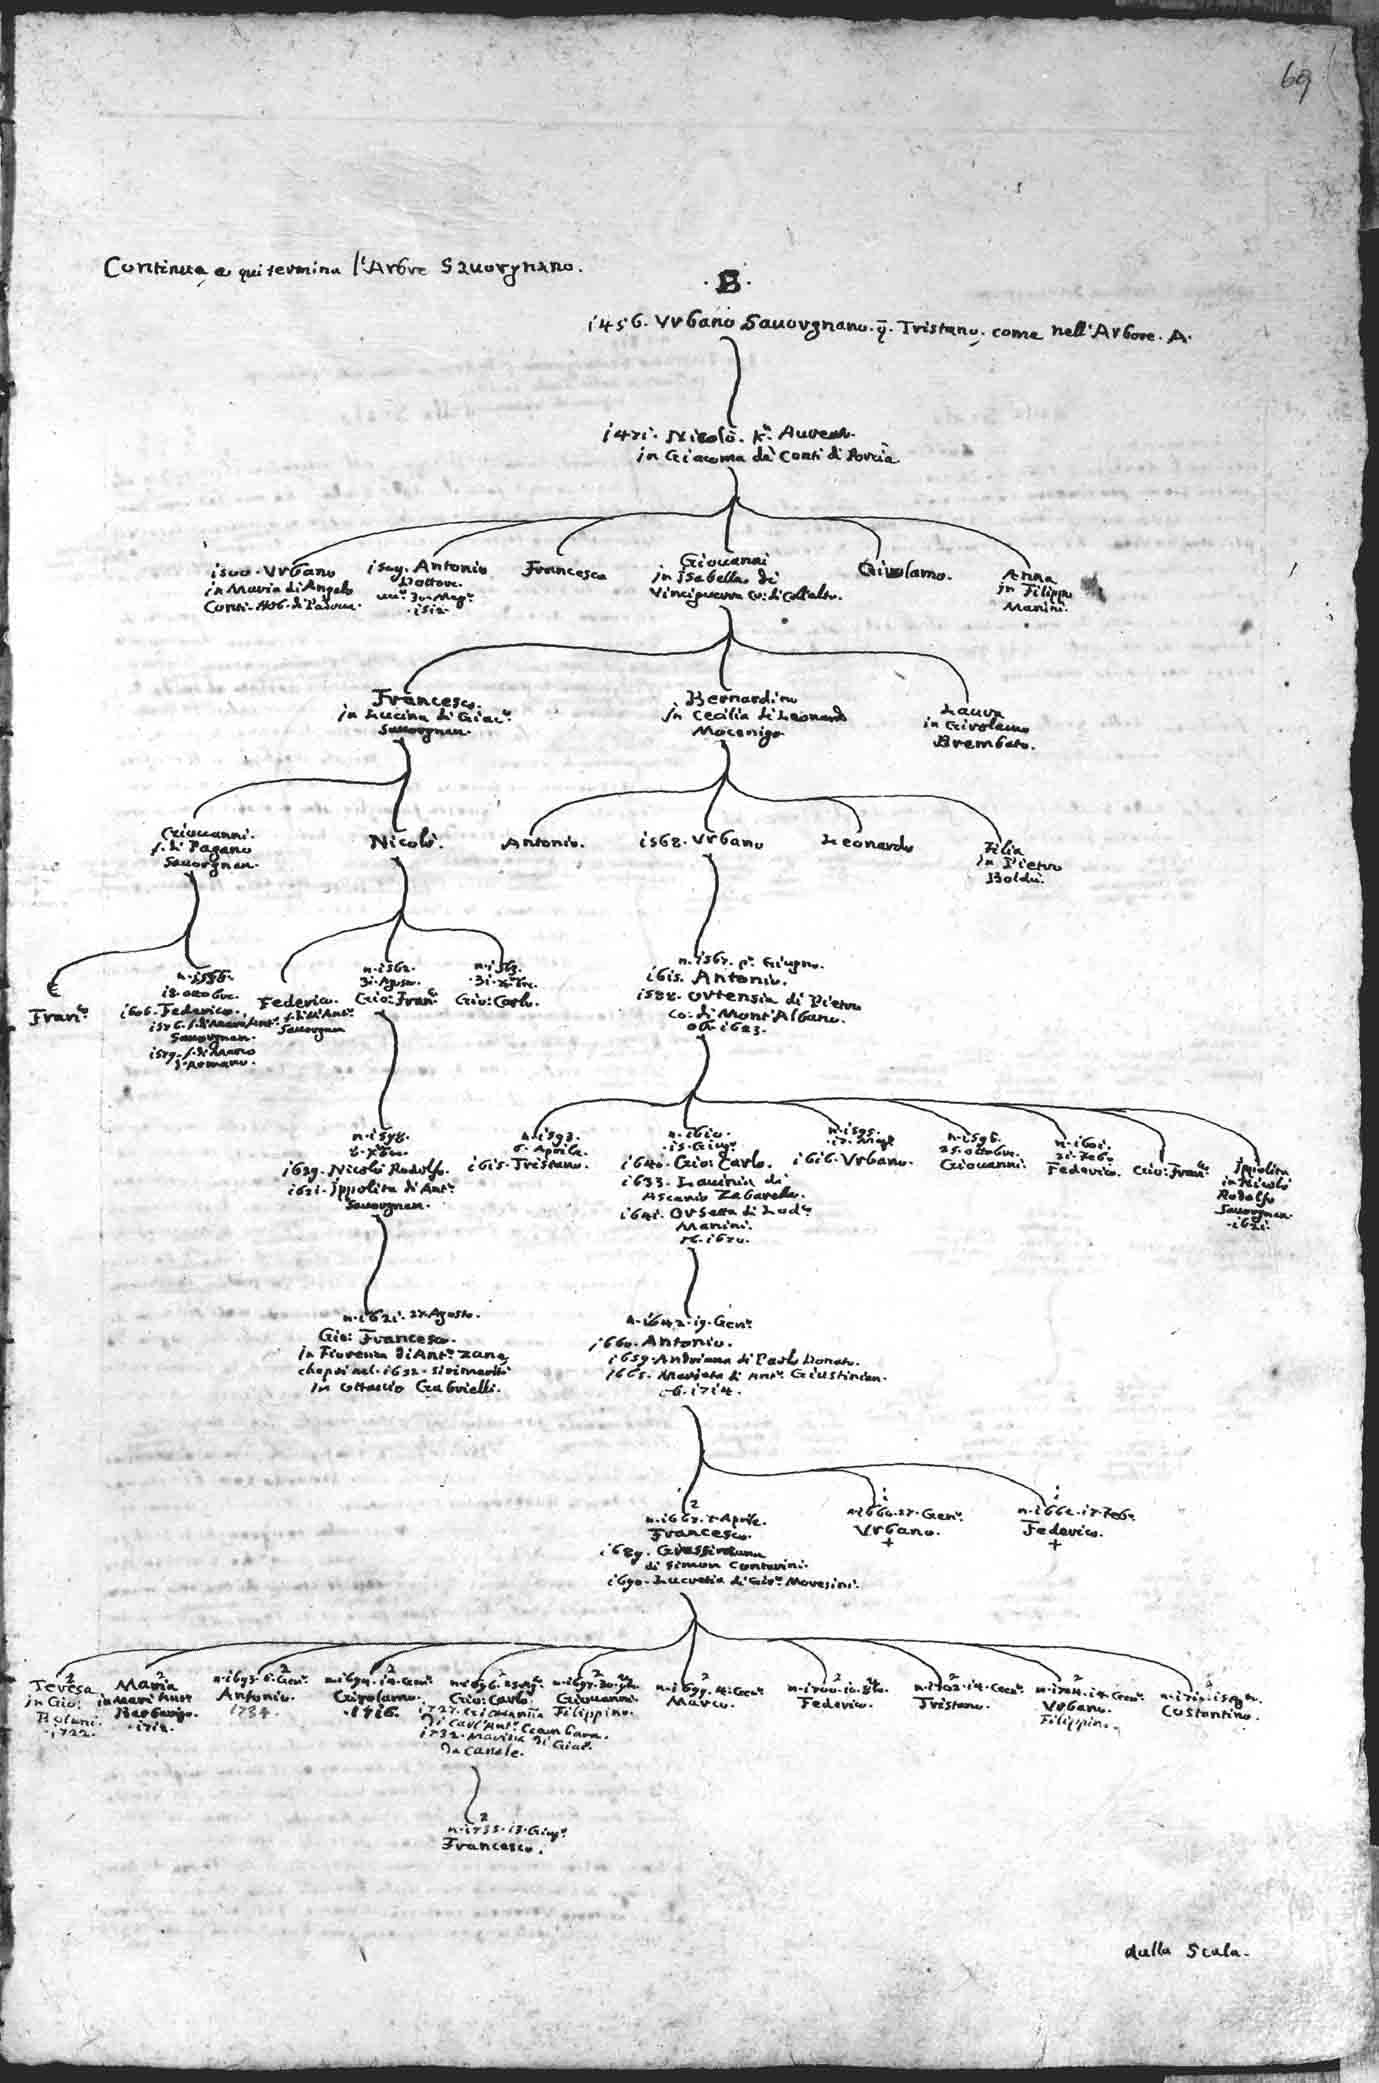 69
Continua, e qui termina l'Arbre Sauorgnano.
.B.
1456. Vrbano Sauorgnano. q. Tristano, come nell'Arbore. A.
1471. Nicolò. Kr. Aurea
in Giacoma dà Conti di Porcia
1500. Vrbano
in Maria di Angelo
Conti. Nob. di Padoua.
Antonio
Dottor.
1512.
Francesco
Giouanni
in Isabella di
Vinciguerra Co: di Coll'alto.
Girolamo.
Anna
in Filippo
Manini.
Francesco.
in Lucina di Giac.º
Sauorgnan.
Bernardino
in Cecilia di Leonardo
Mocenigo
Laura
in Girolamo
Brembato.
Giouanni.
f. di Pagano
Sauorgnan.
Nicolò.
Antonio.
1568. Vrbano
Leonardo
Filia
in Pietro
Boldù.
Fran.º
n. 1556.
18. ottobre.
1606. Federico.
Sauorgnan.
1579. f. di
Federico.
Sauorgnan
n. 1562.
31. Agosto.
Gio: Fran.º
n. 1563.
Gio: Carlo.
n. 1567. p.º Giugno.
1615. Antonio.
1588. Ortensia di Pietro
Co: di Mont'Albano.
ob. 1623.
n. 1578.
1629. Nicolò Rodolfo.
1621. Ippolita di Ant.º
Sauorgnan.
n. 1593.
6. Aprile.
1615. Tristano.
n. 1610.
15. Giug.º
1640. Gio: Carlo.
1633. Lauinia di
Ascanio Zabarella.
1641. Orsetta di Lod.º
Manini.
ob. 1670.
n. 1595.
17. Mag.º
1616. Vrbano.
n. 1596.
25. ottobre.
Giouanni.
n. 1601.
21. Feb.º
Federico.
Gio: Fran.º
Ippolita
in Nicolò
Rodolfo
Sauorgnan.
1621.
n. 1621. 27. Agosto.
Gio: Francesco.
in Fiorenza di Ant.º Zane
che poi nel. 1652. si rimaritò
in Ottauio Gabrielli.
n. 1642. 19. Gen.º
1660. Antonio.
1659. Andriana di Paolo Donato.
1665. Marieta di Ant.º Giustinian.
ob. 1714.
2
n. 1667. 7. Aprile.
Francesco.
1689.
di Simon Contarini.
1690. Lucretia di Gir.º Moresini.
1
n. 1660. 27. Gen.º
Vrbano.
+
1
n. 1662. 17. Feb.º
Federico.
+
2
Teresa
in Gio:
Bolani.
1722.
2
Maria
in Marc'Ant.º
Barbarigo.
1712.
2
n. 1693. 6. Gen.º
Antonio.
1734.
2
n. 1694. 14. Gen.º
Girolamo.
1716.
2
Gio: Carlo.
1727.
di Carl'Ant.º Gambara.
1732. Marina di Giac.º
da Canale.
2
Giouanni
Filippino.
2
n. 1699. 4. Gen.º
Marco.
2
n. 1700. 10.
Federico.
2
n. 1702. 14. Gen.º
Tristano.
2
n. 1704. 14. Gen.º
Vrbano.
Filippin.
2
Costantino.
2
n. 1733. 13. Giug.º
Francesco.
dalla Scala.